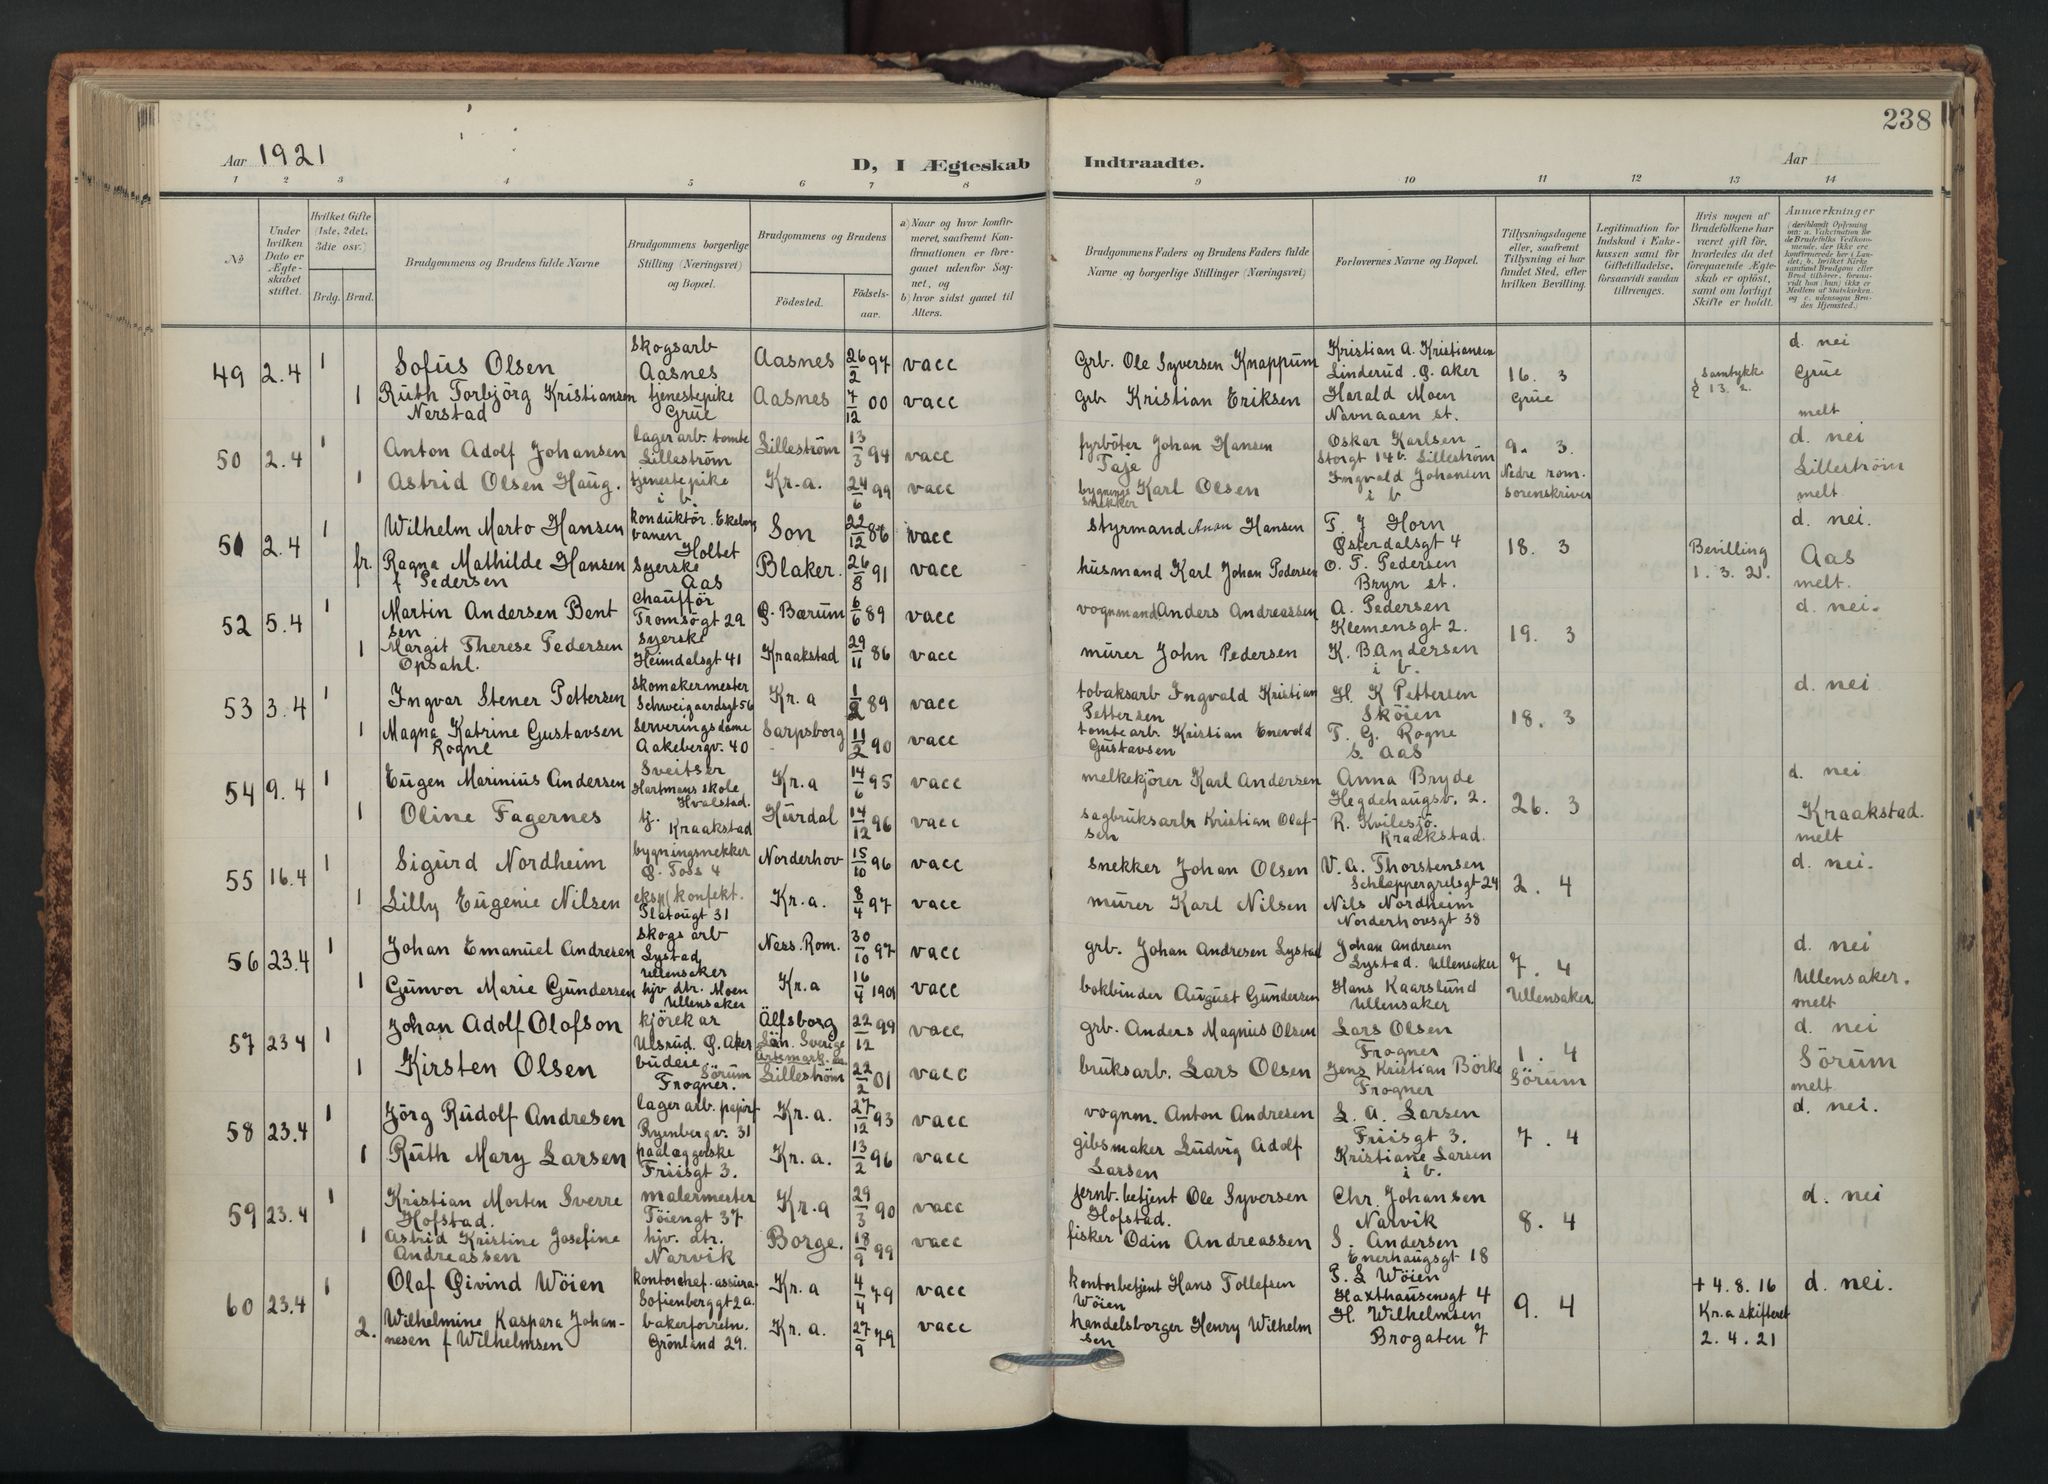 238
Aar 1921
D, I Ægteskab Indtraadte.
Aar
1 2 3 4 5 6 7 8 9 10 11 12 13 14
No
Under hvilken Dato er Ægteskabet stiftet.
Hvilket Gifte (1ste, 2det, 3die osv.)
Brdg. Brud.
Brudgommens og Brudens fulde Navne
Brudgommens borgerlige Stilling (Næringsvei) og Bopæl.
Brudgommens og Brudens
Födested. Födselsaar.
a) Naar og hvor konfirmeret, saafremt Konfirmationen er foregaaet udenfor Sognet, og
b) hvor sidst gaaet til Alters.
Brudgommens Faders og Brudens Faders fulde Navne og borgerlige Stillinger (Næringsvei)
Forlovernes Navne og Bopæl.
Tillysningsdagene eller, saafremt Tillysning ei har fundet Sted, efter hvilken Bevilling.
Legitimation for Indskud i Enkekassen samt for Giftetilladelse, forsaavidt saadan tiltrænges.
Hvis nogen af Brudefolkene har været gift før, hvorledes da det foregaaende Ægteskab er oplöst, samt om lovligt Skifte er holdt.
Anmærkninger
(deriblandt Oplysning om: a. Vakcination for de Brudefolks Vedkommende, der ikke ere konfirmerede her i Landet, b. hvilket Kirkesamfund Brudgom eller Brud tilhörer, forsaavidt han (hun) ikke er Medlem af Statskirken og c. udensogns Brudes Hjemsted.)
49 2.4 1 Sofus Olsen skogsarb Aasnes Aasnes 26/2 97 vacc Grb. Ole Syversen Knappum Kristian A. Kristiansen Linderud Ø. aker 16. 3 Grue samtykke § 13. 2. d. nei Grue
1 Ruth Torbjörg Kristiansen Nerstad tjenestepike Grue Aasnes 7/12 00 vacc grb Kristian Eriksen Harald Moen Navnaaen st. melt
50 2.4 1 Anton Adolf Johansen lagerarb. tomte Lilleström Lilleström 13/3 94 vacc fyrböter Johan Hansen Taje Oskar Karlsen Storgt 14b. Lilleström 9. 3. d. nei
1 Astrid Olsen Haug. tjenestepike i b. Kr.a. 24/6 99 vacc bygnings snekker Karl Olsen Ingvald Johansen i b. Nedre rom. sorenskriver Lilleström melt
51 2.4 1 Wilhelm Marto Hansen konduktör. Ekeberg banen Holtet Son 22/12 86 vacc styrmand Anan Hansen T. J Horn Østerdalsgt 4 18. 3 Bevilling 1. 3. 21. d. nei.
fr. Ragna Mathilde Hansen f Pedersen Syerske Aas Blaker. 26/8 91 vacc husmand Karl Johan Pedersen O. T. Pedersen Bryn st. Aas melt.
52 5.4 1 Martin Andersen Bentsen chaufför Tromsögt 29 Ø. Bærum 6/6 89 vacc vognmand Anders Andreassen A. Pedersen Klemensgt 2. 19. 3 d. nei.
1 Margit Therese Pedersen Opsahl. Syerske Heimdalsgt 41 Kraakstad 29/11 86 vacc murer John Pedersen K. B Andersen i b.
53 3.4 1 Ingvar Stener Pettersen skomakermester Schweigaardsgt 56 Kr. a 89 vacc tobaksarb Ingvald Kristian Pettersen H. K Pettersen Sköien 18. 3 d. nei
1 Magna Katrine Gustavsen Rogne serveringsdame Aakebergv. 40 Sarpsborg 11/2 90 vacc tomtearb. Kristian Enevold Gustavsen T. G. Rogne S. Aas
54 9.4 1 Eugen Marinius Andersen Sveitser Hartmans skole Hvalstad. Kr. a 14/6 95 vacc melkekjörer Karl Andersen Anna Bryde Hegdehaugsv. 2. 26. 3 d. nei
1 Oline Fagernes tj. Kraakstad Hurdal 14/12 96 vacc sagbruksarb Kristian Olafsen R. Kvilesjö. Kraakstad. Kraakstad. melt
55 16.4 1 Sigurd Nordheim bygningsnekker Ø. Toss 4 Norderhov 15/10 96 vacc snekker Johan Olsen V. A. Thorstensen Schleppergrelsgt 24 2. 4 d. nei.
1 Lilly Eugenie Nilsen eksp konfekt. Platougt 31 Kr. a. 8/4 97 vacc murer Karl Nilsen Nils Nordheim Norderhovsgt 38
56 23.4 1 Johan Emanuel Andresen skogs arb Lystad Ullensaker Ness. Rom. 30/10 97 vacc grb. Johan Andresen Lystad Johan Andresen Lystad. Ullensaker 7. 4 d. nei
1 Gunvor Marie Gundersen hjv dtr. Moen Ullensaker Kr. a 16/4 1901 vacc bokbinder August Gundersen Hans Kaarslund Ullensaker Ullensaker. Ullensaker. melt
57 23.4 1 Johan Adolf Olofson kjörekar Ulsrud. Ø. Aker Älfsborg Län. Sverige Artemark 22/12 99 vacc grb. Anders Magnus Olsen Lars Olsen Frogner 1. 4 d. nei
1 Kirsten Olsen budeie Sörum Frogner. Lilleström 22/2 01 vacc bruksarb. Lars Olsen Jens Kristian Börke Frogner Sörum Sörum melt
58 23.4 1 Jörg Rudolf Andresen lagerarb. papirf Ryenbergv. 31 Kr. a. 27/12 93 vacc vognm. Anton Andresen L. A. Larsen Friisgt 3. 7. 4 d. nei.
1 Ruth Mary Larsen paalæggerske Friisgt 3. Kr. a. 13/2 96 vacc gibsmaker Ludvig Adolf Larsen Kristiane Larsen i b.
59 23.4 1 Kristian Morten Sverre Hofstad. malermester Töiengt 37 Kr. a 29/3 90 vacc jernb. betjent Ole Syversen Hofstad. Chr. Johansen Narvik 8. 4 d. nei
1 Astrid Kristine Josefine Andreassen hjv. dtr. Narvik Borge. 18/9 99 vacc fisker Odin Andreassen S. Andersen Enerhaugsgt 18
60 23.4 1 Olaf Øivind Wöien kontorchef. assura. Sofienberggt 2a. Kr. a 4/4 79 vacc kontorbetjent Hans Tollefsen Wöien P. L Wöien Haxthausensgt 4 9. 4 + 4. 8. 16 Kr.a skifteret 2. 4. 21 d. nei.
2. Wilhelmine Kaspara Johannesen f Wilhelmsen bakerforretn. Grönland 29. Kr. a. 27/9 79 vacc handelsborger Henry Wilhelmsen H. Wilhelmsen Brogaten 7